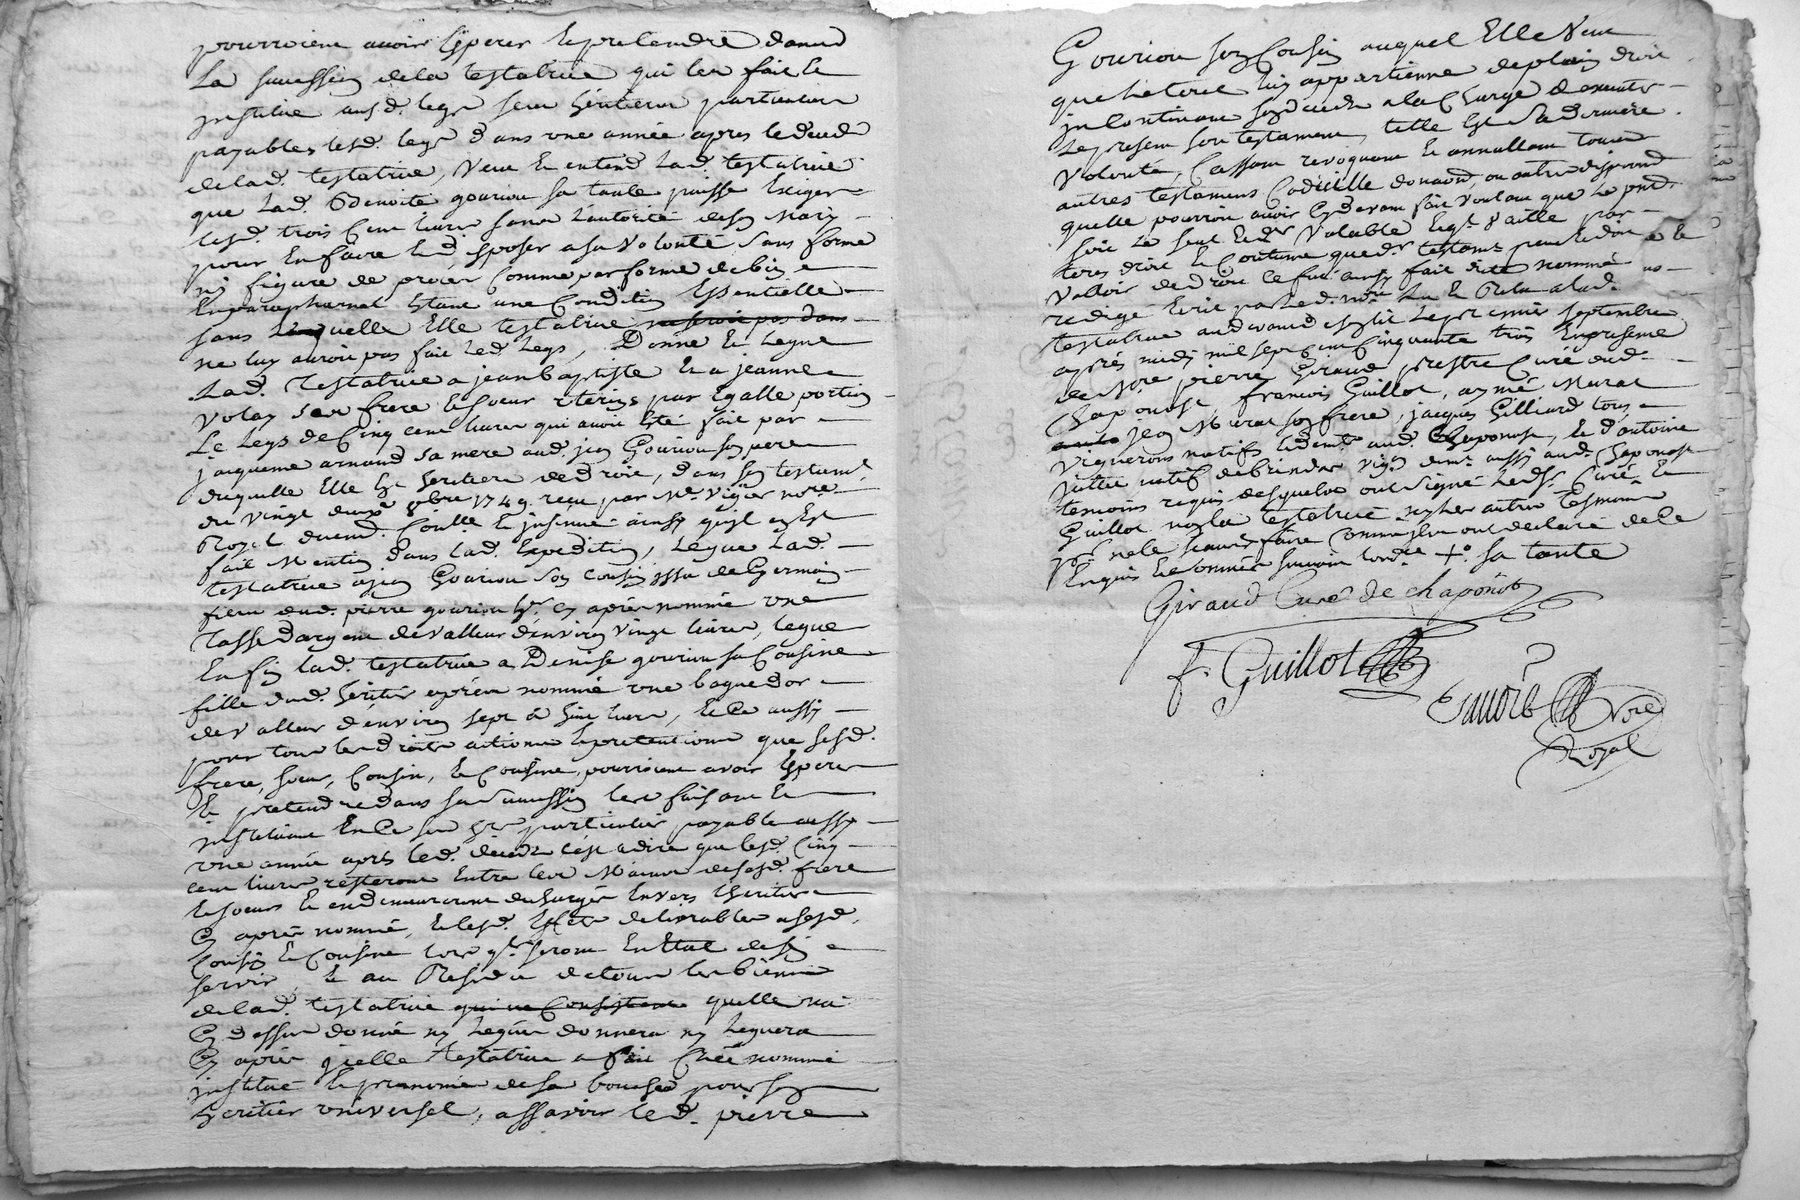 pourroient avoir Esperer Et pretendre dans
La succession de la testatrice qui les fait Et
institue ausd. legs ses héritiers particuliers
payables lesd. legs dans une année apres le deced
de lad. testatrice, Veut Et entend Lad. testatrice
que Lad. Benoite gouriou sa tante puisse Exiger
lesd. trois Cent livres sans L'autorité de son Mary
pour En faire Et disposer a sa Volonté Sans forme
ny figure de procès Comme par forme de bien
Enparaphernal Etant une Condition Essentielle
sans Laquelle Elle testatrice ne feroit pas dans
ne luy auroit pas fait Led. Legs, Donne Et Legue
Lad. Testatrice a jean baptiste Et a jeanne
Volay Ses frere Et Soeur uterins par Egalle portion
Le Legs de Cinq cent livres qui avoit Eté fait par
jacqueme arnaud sa mere aud. jean Gouriou son pere
duquelle Elle Est heritiere de droit, dans son testamt.
du vingt deux 8bre 1749 recu par Me. Vigier nore.
Royal duemt. Conllé Et insinué ainsy quil en Est
fait Mention dans lad. Expedition, Legue Lad.
testatrice a jean Gouriou Son cousin issu de Germain
fils dud. pierre gouriou hr. Cy aprés nommé une
Tasse dargent de valleur d'environ vingt livres, legue
En fin lad. testatrice a Denise gouriou sa Cousine
fille dud. heritier cy aprés nommé une bague d'or
de valleur d'environ sept a huit livres, Et Ce aussy
pour tous les droits actions Et pretentions que sesd.
frere, soeur, Cousin, Et Cousine, pourroient avoir Esperer
Et pretendre dans sa Succession les faisant Et
instituant En Ce ses hrs particuliers payable aussy
une année aprés led. deced c'est a dire que lesd. Cinq
cent livres resteront Entre les Mains de sesd. frere
Et soeur Et en demeureront dechargés Envers L'heritier
Cy aprés nommé, Et lesd. Effets delivrables a sesd.
Cousin Et Cousine lors qls. seront En Etat de s'en
servir, Et au Residu de tous les biens
de lad. testatrice qui ne Consistent quelle na
Cy dessus donné ny Legué donnera ny Leguera
Cy aprés jcelle testatrice a fait Créé nommé
institué Et prenommé de sa bouche pour son
heritier universel, assavoir led. pierre
Gouriou son Cousin auquel Elle Veut
que Le tout luy appartienne de plein droit
incontinant son deced a la Charge d'executer
Le present son testament, telle Est Sa derniere
Volonté, Cassant revoquant Et annullant tous
autres testamens Codicille donaon, ou autre dispond
quelle pourroit avoir Cy devant fait voulant que Le pnt.
soit Le seul Et dr. Valable Et qu'il Vaille par
tous droit Et Coutume que dr. testamt. peut Et doit
Valloir de droit ce fut ainsy fait dicté nommé
redigé Ecrit par led. nore Lu Et Relu a lad.
testatrice aud. Chaponost Le premier septembre
aprés midy mil sept Cent Cinquante trois En presence
de Mre pierre Giraud prestre Curé dud.
Chaponost françois Guillot, aymé Murat
jean Murat son frere, jacques Gilliard tous
Vignerons natifs Et demts. aud. Chaponost, Et d'antoine
juttet natif de brindas vign. demt. aussy aud. Chaponost
temoins requis desquels ont signé Led. Sr. Curé Et
Guillot non la testatrice ny les autres Tesmoins
pr. ne le sçavoir faire comme ils ont declaré de Ce
Enquis Et sommés suivant lordce +. sa tante
Giraud Curé de chaponost
F. Guillot
Nore
Royal